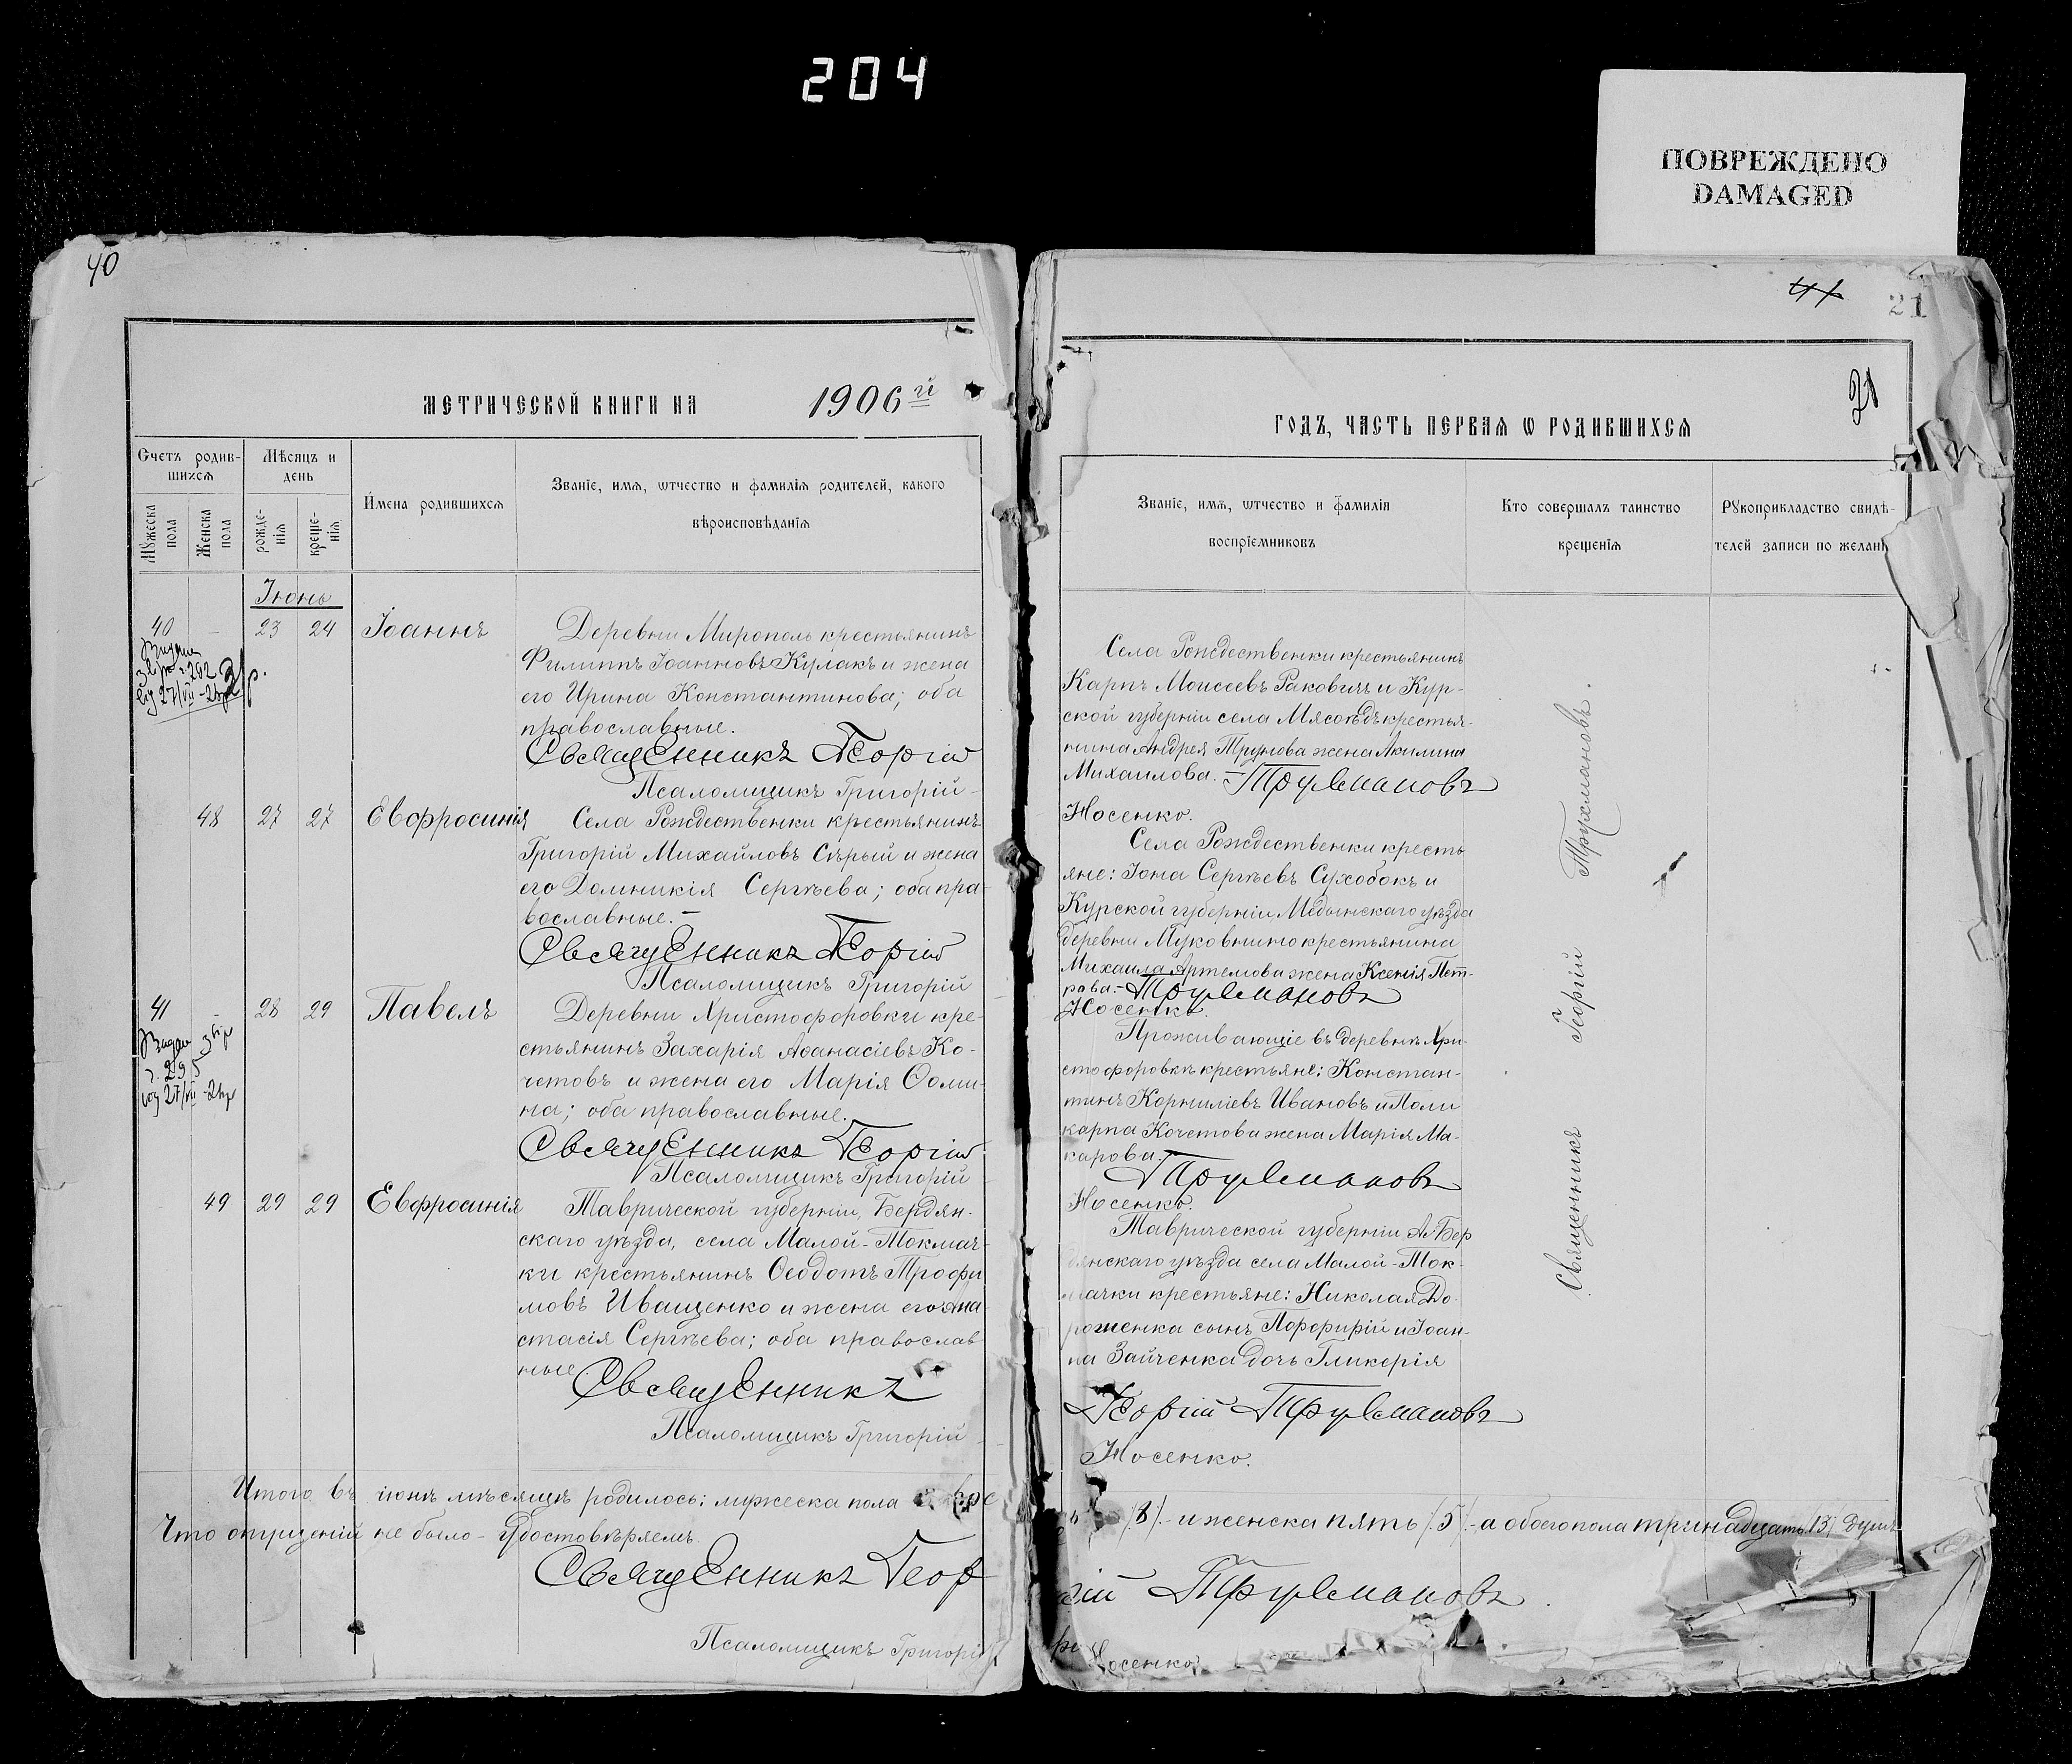 204
ПОВРЕЖДЕНО
DAMAGED
40
МЕТРИЧЕСКОЙ КНИГИ НА 1906й
Счетъ родив-
шихсѧ
Мѣсяцъ и
день
Мꙋжеска
пола
Женска
пола
рожде-
нїя
креще-
нїя
Имена родившихсѧ
Званїе, имѧ, ѿтчество и фамилїѧ родителей, какого
вѣроисповѣданїѧ
Іюнь
40 - 23 24 Іоаннъ
Деревни Мирополь крестьянинъ
Филиппъ Іоанновъ Кулакъ и жена
его Ирина Константинова; оба
православные.
Священникъ Георгій
Псаломщикъ Григорій
48 27 27 Евфросинія
Села Рождественки крестьянинъ
Григорій Михайловъ Сѣрый и жена
его Домникія Сергѣева; оба пра-
вославные.-
Священникъ Георгій
Псаломщикъ Григорій
41 - 28 29 Павелъ
Деревни Христофоровки кре-
стьянинъ Захарія Аѳанасіевъ Ко-
четовъ и жена его Марія Ѳоми-
на; оба православные.
Священникъ Георгій
Псаломщикъ Григорій
49 29 29 Евфросинія
Таврической губерніи, Бердян-
скаго уѣзда, села Малой-Токмач-
ки крестьянинъ Ѳеодотъ Трофи
мовъ Иващенко и жена его Ана-
стасія Сергѣева; оба православ
ные
Священникъ
Псаломщикъ Григорій
Итого въ іюнѣ мѣсяцѣ родилось: мужеска пола
Что опущеній не было - удостовѣряемъ.
Священникъ Геор
Псаломщикъ Григорі
41
21
21
ГОДЪ, ЧАСТЬ ПЕРВАѦ Ѡ РОДИВШИХСѦ
Званїе, имѧ, ѿтчество и фамилїѧ
воспрїемниковъ
Кто совершалъ таинство
крещенїѧ
Рꙋкоприкладство свидѣ-
телей записи по желан
Села Рождественки крестьянинъ
Карпъ Моисеевъ Раковичъ и Кур-
ской губерніи села Мясоѣдъ крестья-
нина Андрея Трунова жена Акилина
Михаилова.- Трухмановъ
Носенко.
Села Рождественки кресть
яне: Іона Сергѣевъ Сухобокъ и
Курской губерніи Медынскаго уѣзда
деревни крестьянина
Михаила Артемова жена Ксенія Пет-
рова.- Трухмановъ
Носенко.
Проживающіе въ деревнѣ Хри-
стофоровкѣ крестьяне: Констан-
тинъ Корниліевъ Ивановъ и Поли
карпа Кочетова жена Марія Ма-
карова.
Трухмановъ
Носенко.
Таврической губерніи Бер
дянскаго уѣзда села Малой-Ток-
мачки крестьяне: Николая До-
роженка сынъ Порфирій и Іоан-
на Зайченка дочь Гликерія
Георгій Трухмановъ
Носенко.
Священникъ Георгій Трухмановъ.
/8/.- и женска пять /5/.- а обоего пола тринадцать /13/ душъ
гій Трухмановъ
Носенко